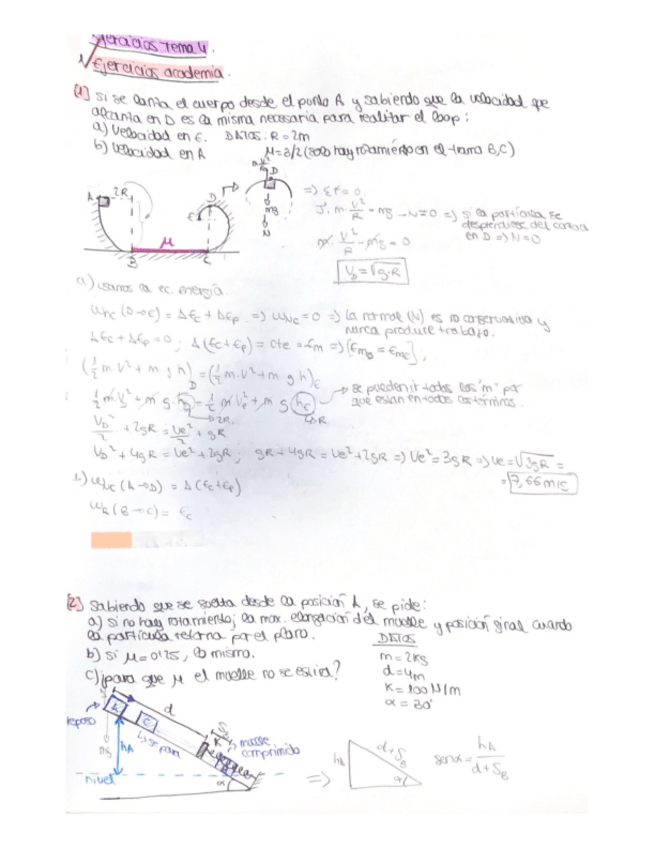 Ejercicios Tema 4.
Ejercicios academia.
[1] Si se lanza el cuerpo desde el punto A y sabiendo que la velocidad que
alcanza en D es la misma necesaria para realizar el loop:
a) Velocidad en E. DATOS: R = 2m
b) Velocidad en A
μ = 3/2 (solo hay rozamiento en el tramo B,C)
A 2R D E μ B C
D mg N
=> ΣF = 0
m · V²/R - mg - N = 0 => si la partícula se
desprendiese del contacto
en D => N = 0
m · V²/R - mg = 0
V_D = √g·R
a) Usamos la ec. energía
W_NC (D→E) = ΔEc + ΔEp => W_NC = 0 => La normal (N) es no conservativa y
nunca produce trabajo.
ΔEc + ΔEp = 0 ; Δ(Ec + Ep) = cte = Em => [Em_D = Em_E],
(1/2 m·v² + m g h)_D = (1/2 m·v² + m g h)_E
→ se pueden ir todas las "m" por
que están en todos los términos.
1/2 m V_D² + m g h_D = 1/2 m V_E² + m g h_E
2R R
V_D²/2 + 2gR = V_E²/2 + gR
V_D² + 4gR = V_E² + 2gR ; gR + 4gR = V_E² + 2gR => V_E² = 3gR => V_E = √3gR =
= 7,66 m/s
b) W_NC (A→D) = Δ(Ec + Ep)
W_R (B→C) = Ec
[2] Sabiendo que se suelta desde la posición A, se pide:
a) si no hay rozamiento; la max. elongación del muelle y posición final cuando
la partícula retorna por el plano.
b) si μ = 0'25, lo mismo.
c) ¿para que μ el muelle no se estira?
DATOS
m = 2kg
d = 4m
K = 100 N/m
α = 30°
reposo A C d
b) se para
muelle
comprimido
mg h_A
nivel α
=> h_A d + S_B α
senα = h_A / d + S_B